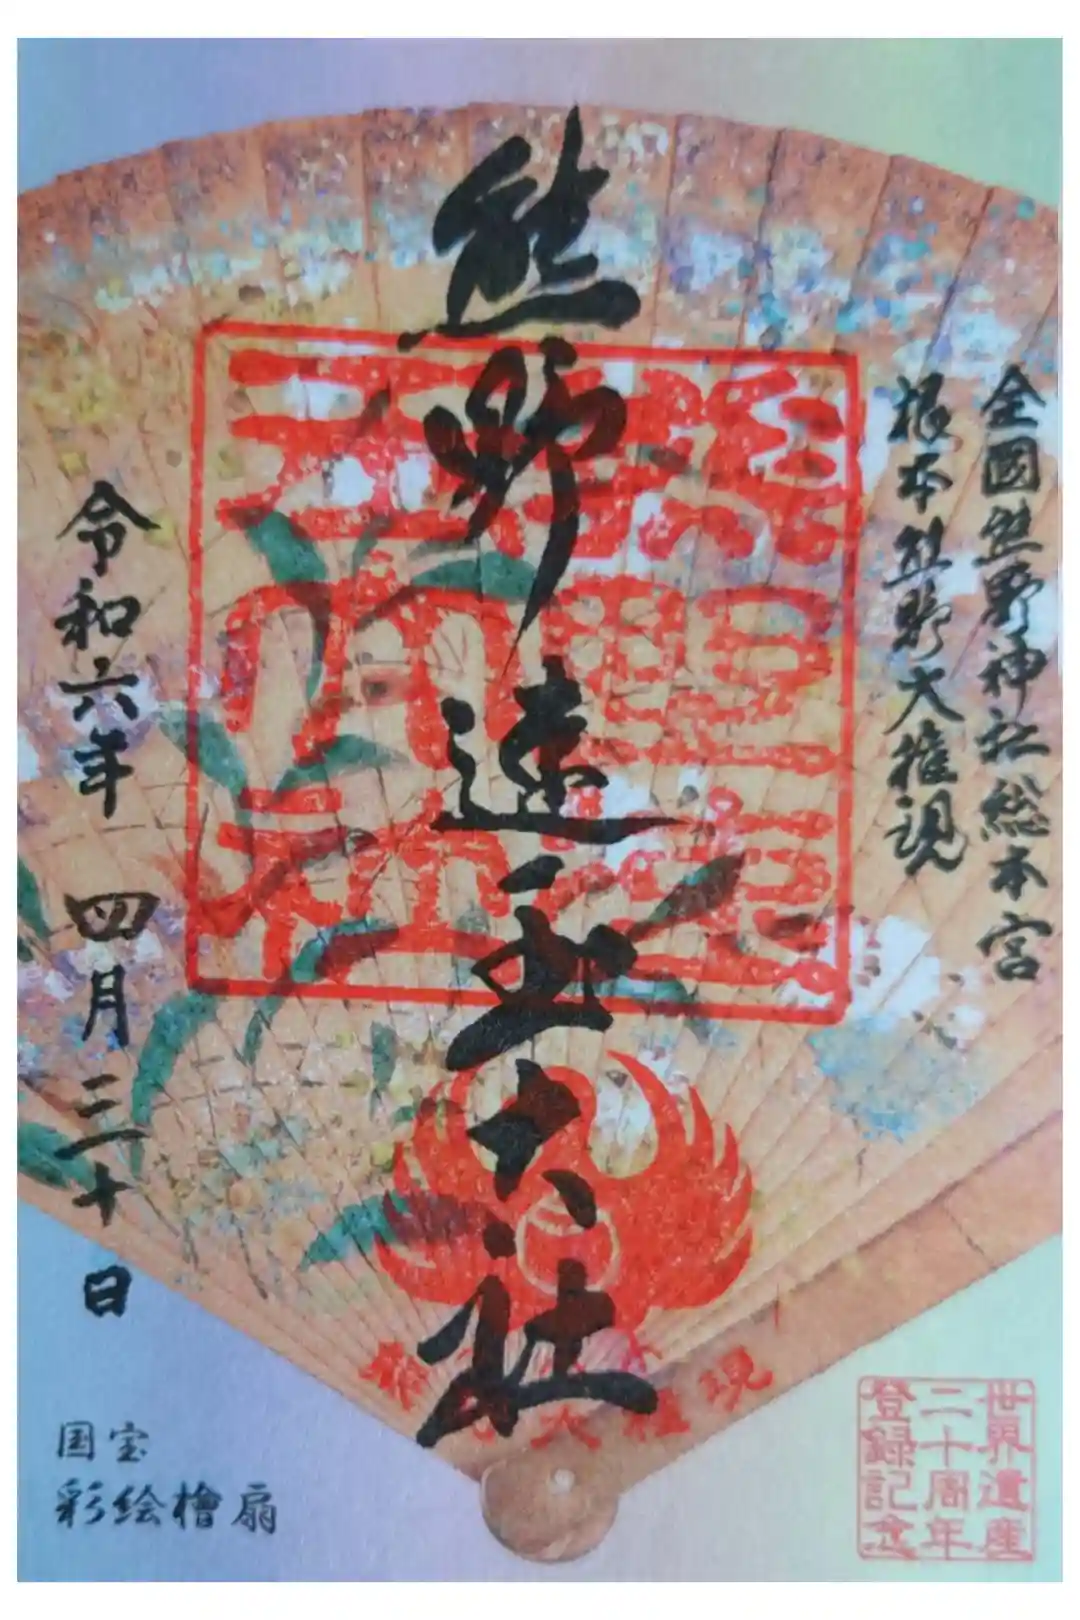 全國熊野神社総本宮
根本熊野大権現
熊野速玉大社
令和六年 四月三十日
国宝
彩絵檜扇
世界遺産
二十周年
登録記念
熊野大権現